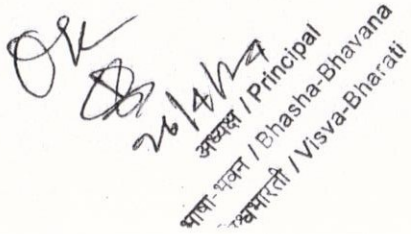 OK
26/4/24
अध्यक्ष / Principal
भाषा-भवन / Bhasha-Bhavana
विश्वभारती / Visva-Bharati